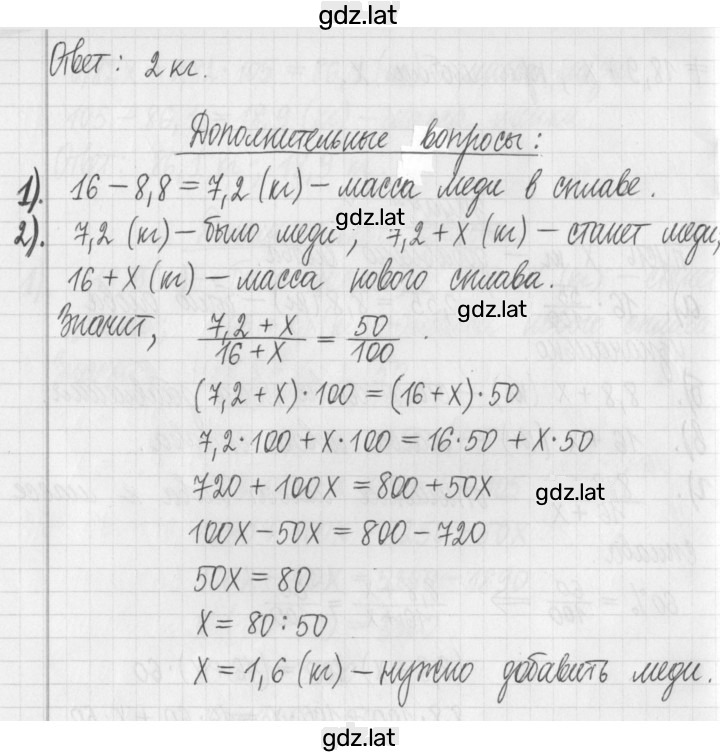 gdz.lat
Ответ: 2 кг.
Дополнительные вопросы:
1). 16 - 8,8 = 7,2 (кг) - масса меди в сплаве.
gdz.lat
2). 7,2 (кг) - было меди; 7,2 + x (кг) - станет меди,
16 + x (кг) - масса нового сплава.
gdz.lat
Значит, (7,2 + x)/(16 + x) = 50/100.
(7,2 + x) · 100 = (16 + x) · 50
7,2 · 100 + x · 100 = 16 · 50 + x · 50
720 + 100x = 800 + 50x
gdz.lat
100x - 50x = 800 - 720
50x = 80
x = 80 : 50
x = 1,6 (кг) - нужно добавить меди.
gdz.lat